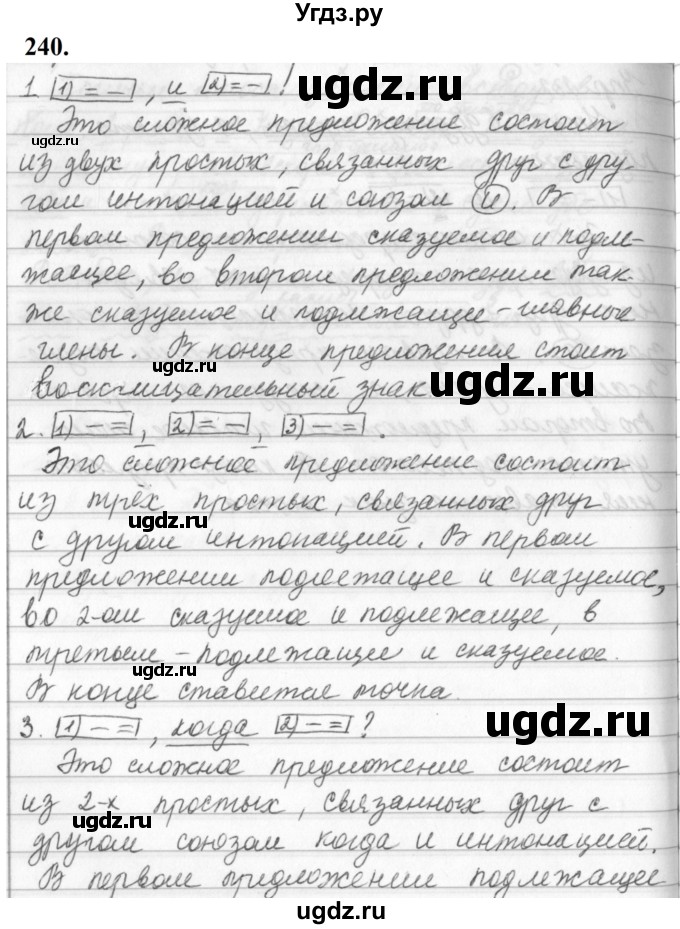 Угдз.ру
240.
1. [1) = –], и [2) = –]!
Это сложное предложение состоит
из двух простых, связанных друг с дру-
гом интонацией и союзом и. В
первом предложении сказуемое и подле-
жащее, во втором предложении так-
же сказуемое и подлежащее – главные
члены. В конце предложения стоит
восклицательный знак
2. [1) – =], [2) = –], [3) – =].
Это сложное предложение состоит
из трёх простых, связанных друг
с другом интонацией. В первом
предложении подлежащее и сказуемое,
во 2-ом сказуемое и подлежащее, в
третьем – подлежащее и сказуемое.
В конце ставится точка.
3. [1) – =], когда [2) – =]?
Это сложное предложение состоит
из 2-х простых, связанных друг с
другом союзом когда и интонацией.
В первом предложении подлежащее
ugdz.ru
ugdz.ru
ugdz.ru
ugdz.ru
ugdz.ru
ugdz.ru
ugdz.ru
ugdz.ru
ugdz.ru
ugdz.ru